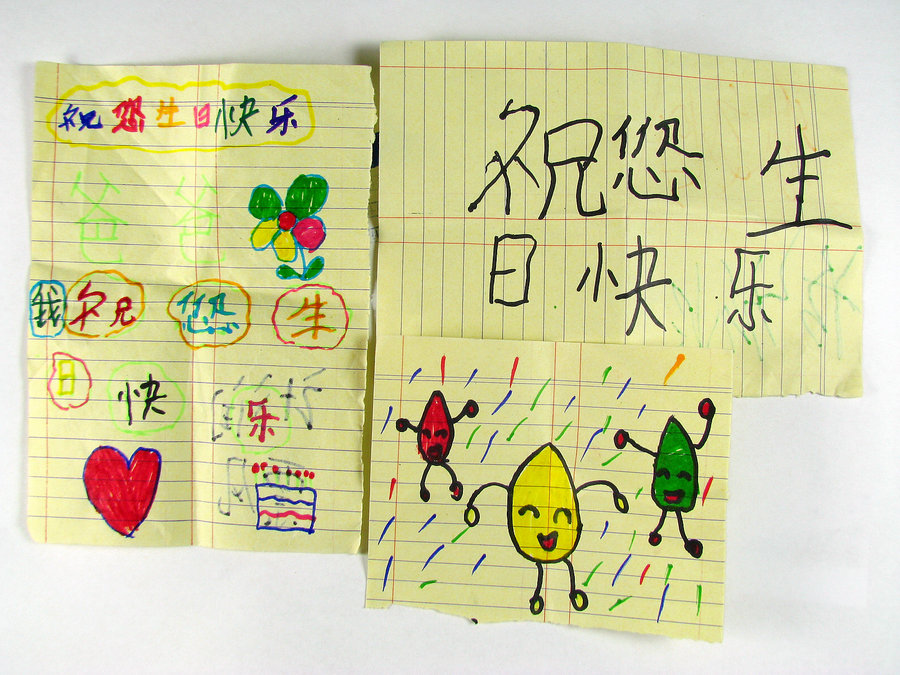 祝您生日快乐
我祝您生
日快乐
祝您生
日快乐